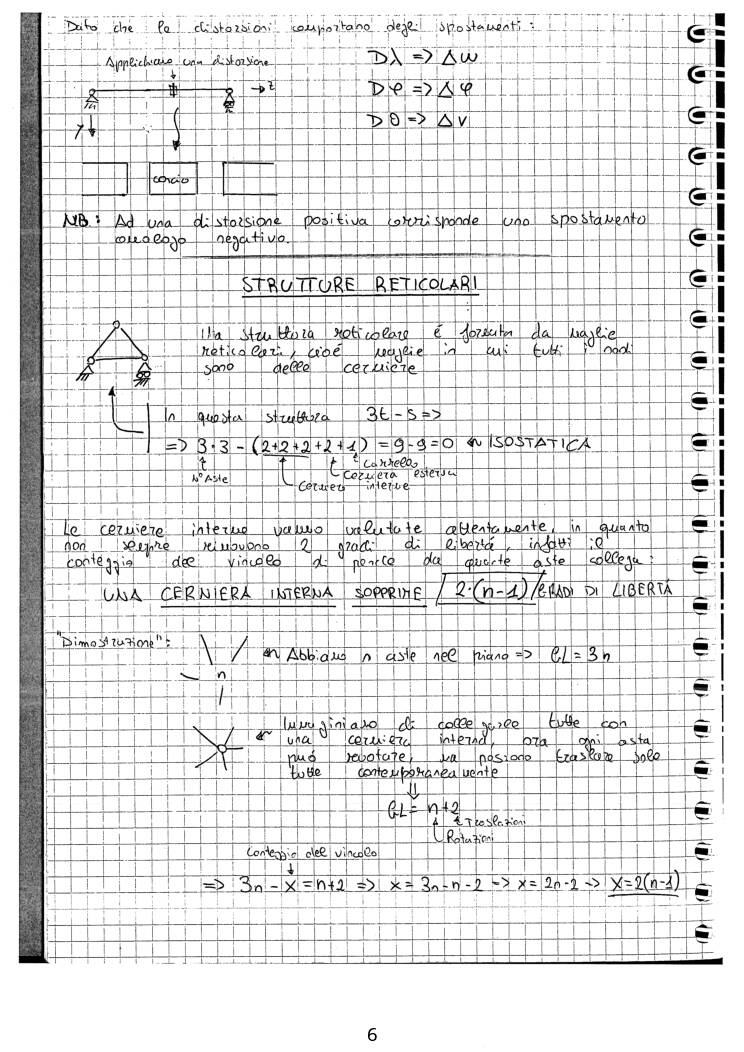 Dato che le distorsioni comportano degli spostamenti:
Applichiamo una distorsione
Dλ => Δw
Dφ => Δφ
Dθ => Δv
z
y
concio
NB: Ad una distorsione positiva corrisponde uno spostamento
omologo negativo.
STRUTTURE RETICOLARI
Una struttura reticolare é formata da maglie
reticolari, cioé maglie in cui tutti i nodi
sono delle cerniere
In questa struttura 3t-s =>
=> 3·3 - (2+2+2+2+1) = 9-9=0 ISOSTATICA
Carrello
Cerniera esterna
N° Aste
Cerniere interne
Le cerniere interne vanno valutate attentamente, in quanto
non sempre rimuovono 2 gradi di libertá, infatti il
conteggio del vincolo di penda da quante aste collega:
UNA CERNIERA INTERNA SOPPRIME 2·(n-1) GRADI DI LIBERTÁ
"Dimostrazione":
n
Abbiamo n aste nel piano => GL = 3n
Immaginiamo di collegarle tutte con
una cerniera interna, ora ogni asta
puó ruotare, ma possono traslare solo
tutte contemporaneamente
GL = n+2
Traslazioni
Rotazioni
Conteggio del vincolo
=> 3n - x = n+2 => x = 3n-n-2 -> x = 2n-2 -> x=2(n-1)
6